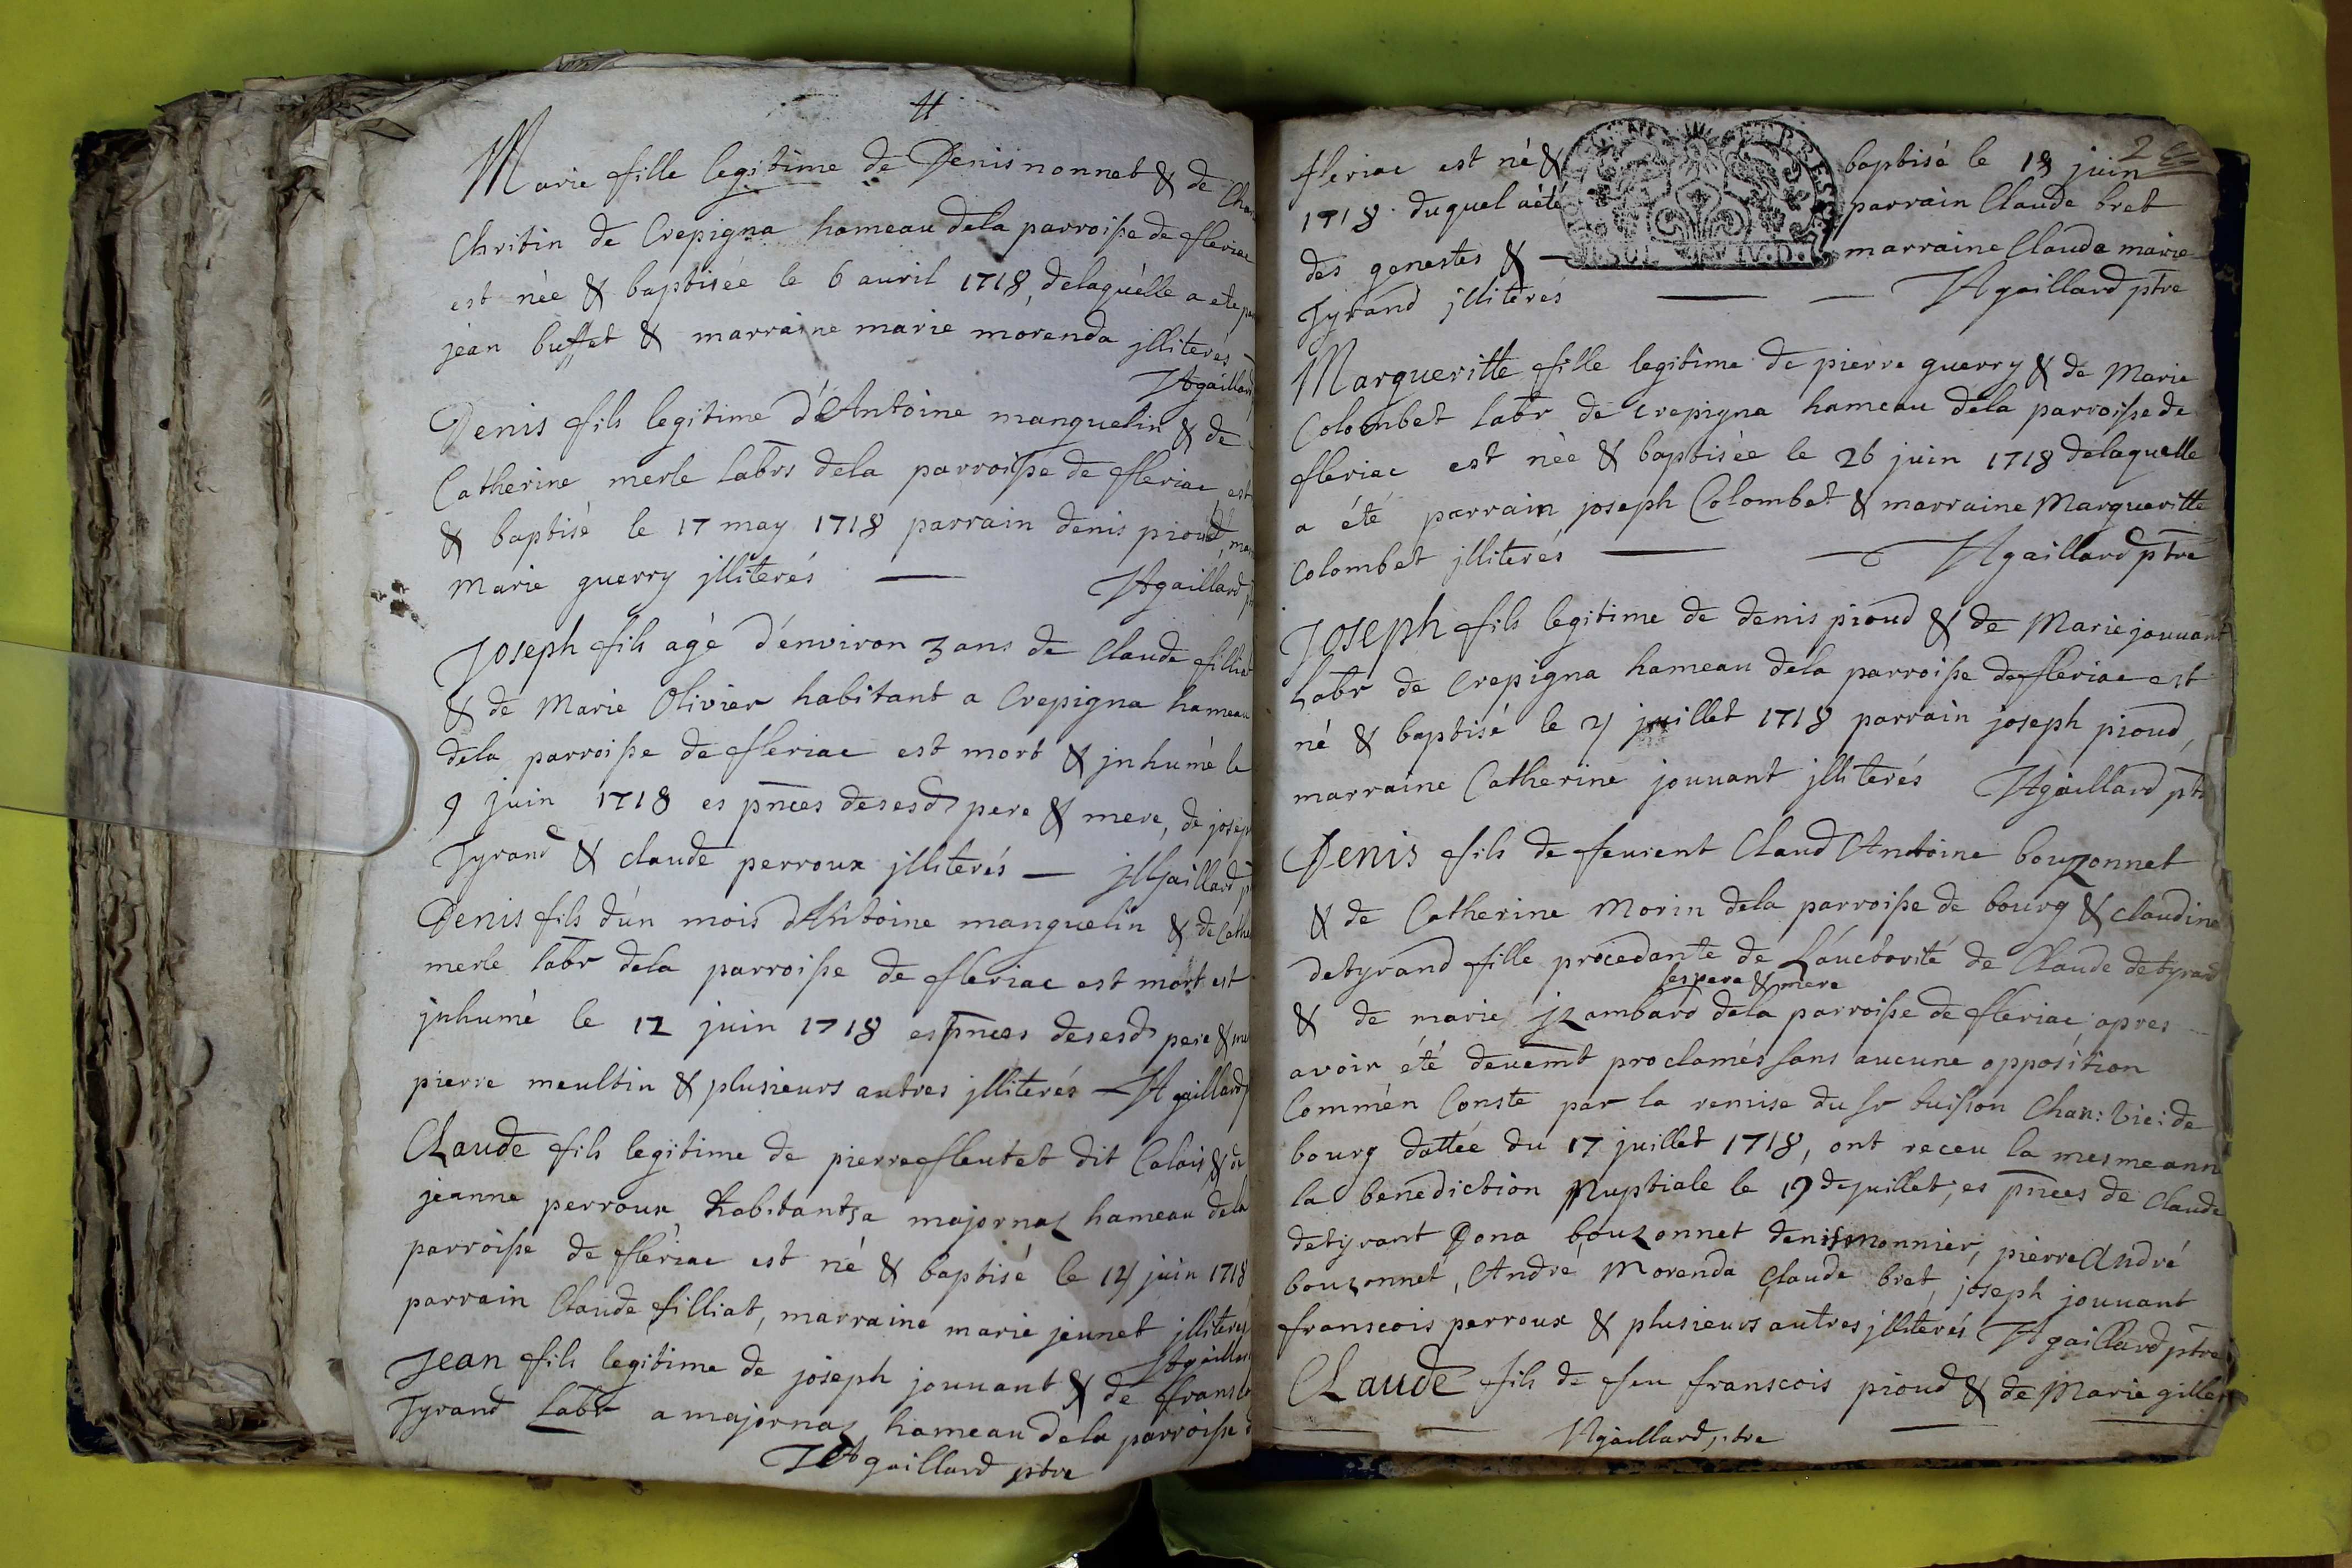 Marie fille legitime de Denis nonnet & de
Chritin de Crepigna hameau dela parroisse de fleriac
est née & baptisée le 6 auril 1718, delaquelle a ete
jean buffet & marraine marie morenda jlliterés
JAgaillard
Denis fils legitime d'Antoine manguelin & de
Catherine merle labrs dela parroisse de fleriac est
& baptisé le 17 may 1718 parrain denis pioud,
Marie guerry jlliterés — JAgaillard
Joseph fils agé d'environ 3 ans de Claude filliat
& de Marie Olivier habitant a Crepigna hameau
dela parroisse de fleriac est mort & jnhumé le
9 juin 1718 es pnces desesd pere & mere, de joseph
Tyrand & claude perroux jlliterés — JAgaillard
Denis fils d'un mois d'Antoine manguelin & de
merle labr dela parroisse de fleriac est mort est
jnhumé le 12 juin 1718 es pnces desesd pere &
pierre meultin & plusieurs autres jlliterés — JAgaillard
Claude fils legitime de pierre fleutet dit Calais & de
jeanne perroux habitants a majornaz hameau dela
parroisse de fleriac est né & baptisé le 14 juin 1718
parrain Claude filliat, marraine marie jeunet jlliterés
JAgaillard
Jean fils legitime de joseph jouuant & de
Tyrand labr a majornaz hameau dela parroisse
JAgaillard ptre
2
fleriac est né & baptisé le 18 juin
1718 duquel a été parrain Claude bret
des genestes & — marraine Clauda marie
Tyrand jlliterés — — JAgaillard ptre
SOL IV.D.
Margueritte fille legitime de pierre guerry & de Marie
Colombet labr de Crepigna hameau dela parroisse de
fleriac est née & baptisée le 26 juin 1718 delaquelle
a été parrain joseph Colombet & marraine Margueritte
Colombet jlliterés — — JAgaillard ptre
Joseph fils legitime de denis pioud & de Marie jouuant
labr de Crepigna hameau dela parroisse de fleriac est
né & baptisé le 4 juillet 1718 parrain joseph pioud,
marraine Catherine jouuant jlliterés JAgaillard ptre
Denis fils de feu Claud Antoine bouzonnet
& de Catherine Morin dela parroisse de bourg & claudine
detyrand fille procedante de L'auctorité de Claude detyrand
ses pere & mere
& de marie jzambard dela parroisse de fleriac apres
avoir été deuemt proclamés sans aucune opposition
Comm'en Conste par la remise du sr buisson Chan: vic: de
bourg dattée du 17 juillet 1718, ont receu la mesme ann
la benediction Nuptiale le 19 de juillet, es pnces de Claude
detyrant Dona bouzonnet denis monnier, pierre André
bouzonnet, André Morenda Claude bret, joseph jouuant
franscois perroux & plusieurs autres jlliterés JAgaillard ptre
Claude fils de feu franscois pioud & de Marie
— JAgaillard, ptre — —